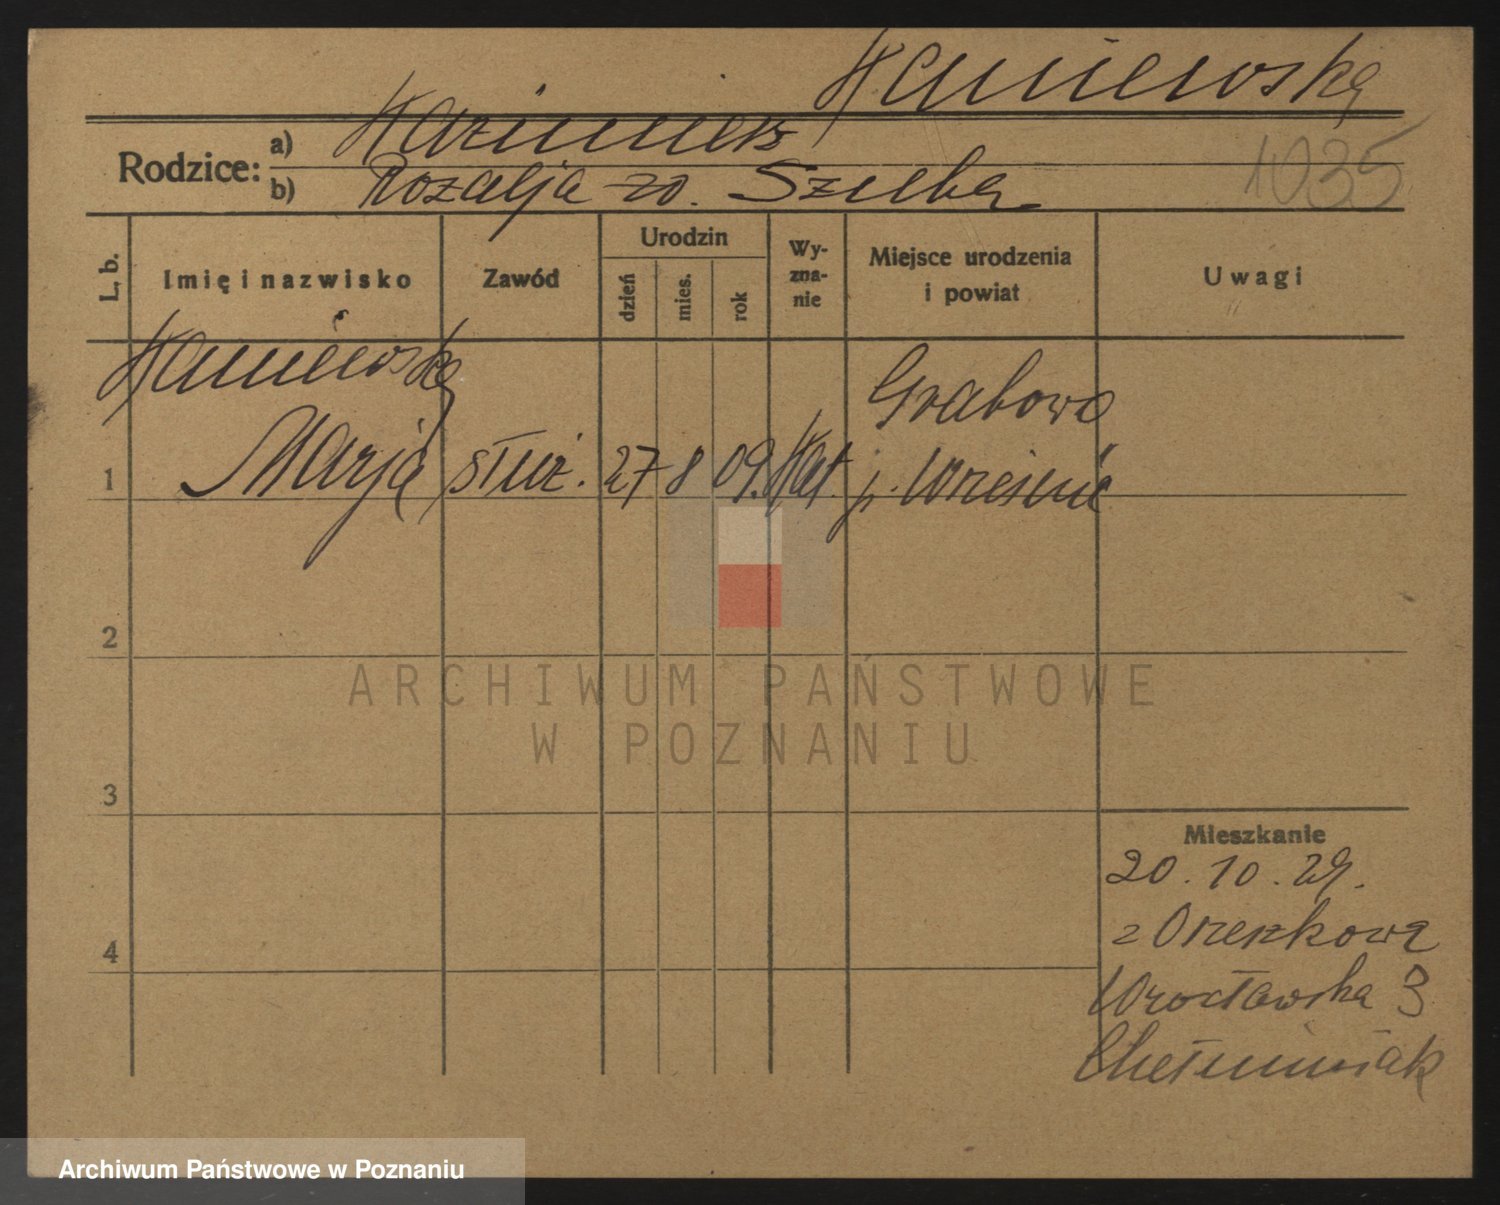 Kaniewska
Rodzice: a) Kazimierz
b) Rozalja zd. Szulka
1035
L. b.
Imię i nazwisko
Zawód
Urodzin
dzień
mies.
rok
Wy-
zna-
nie
Miejsce urodzenia
i powiat
Uwagi
Kaniewska
Grabowo
1 Marja służ. 27 8 09. Kat. p. Września
2
ARCHIWUM PAŃSTWOWE
W POZNANIU
3
Mieszkanie
20. 10. 29.
4
z Orzeszkowa
Wrocławska 3
Chełminiak
Archiwum Państwowe w Poznaniu